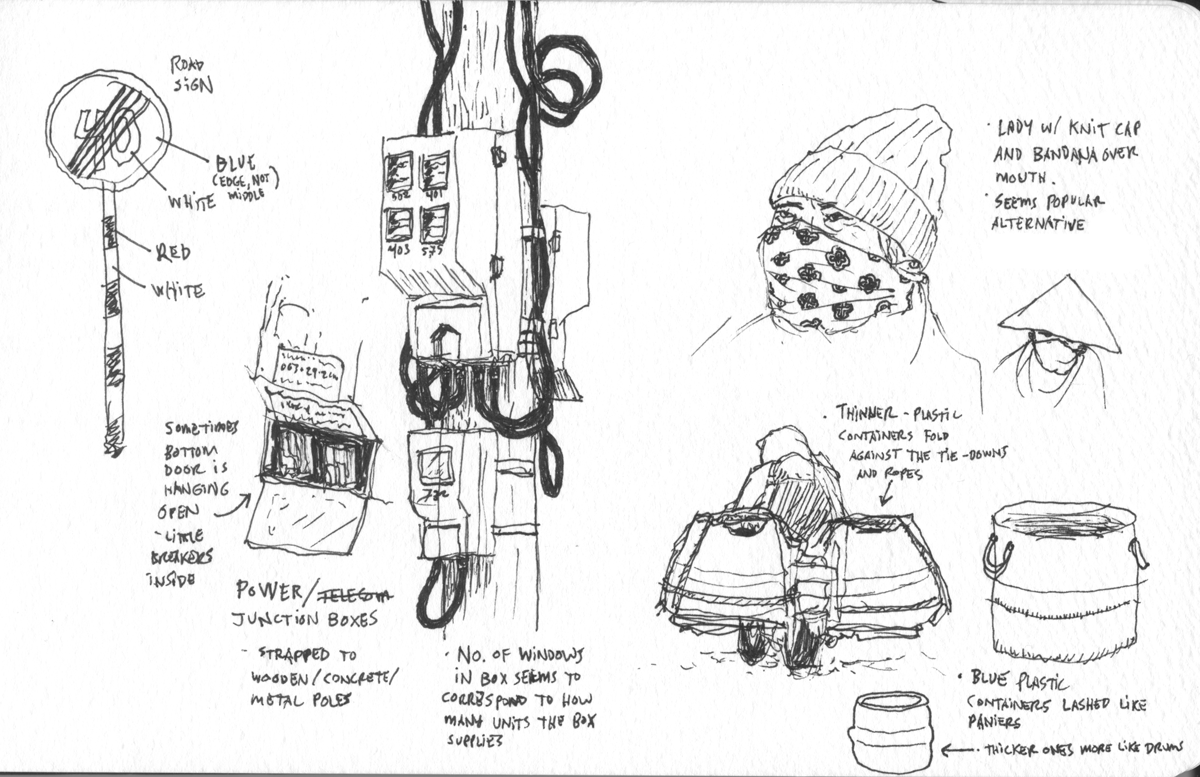 ROAD
SIGN
40
BLUE
(EDGE, NOT
MIDDLE)
WHITE
RED
WHITE
502 401
403 575
732
SOMETIMES
BOTTOM
DOOR IS
HANGING
OPEN
- LITTLE
BREAKERS
INSIDE
POWER/TELECOM
JUNCTION BOXES
· STRAPPED TO
WOODEN/CONCRETE/
METAL POLES
· NO. OF WINDOWS
IN BOX SEEMS TO
CORRESPOND TO HOW
MANY UNITS THE BOX
SUPPLIES
· LADY W/ KNIT CAP
AND BANDANA OVER
MOUTH.
· SEEMS POPULAR
ALTERNATIVE
· THINNER-PLASTIC
CONTAINERS FOLD
AGAINST THE TIE-DOWNS
AND ROPES
· BLUE PLASTIC
CONTAINERS LASHED LIKE
PANIERS
· THICKER ONES MORE LIKE DRUMS